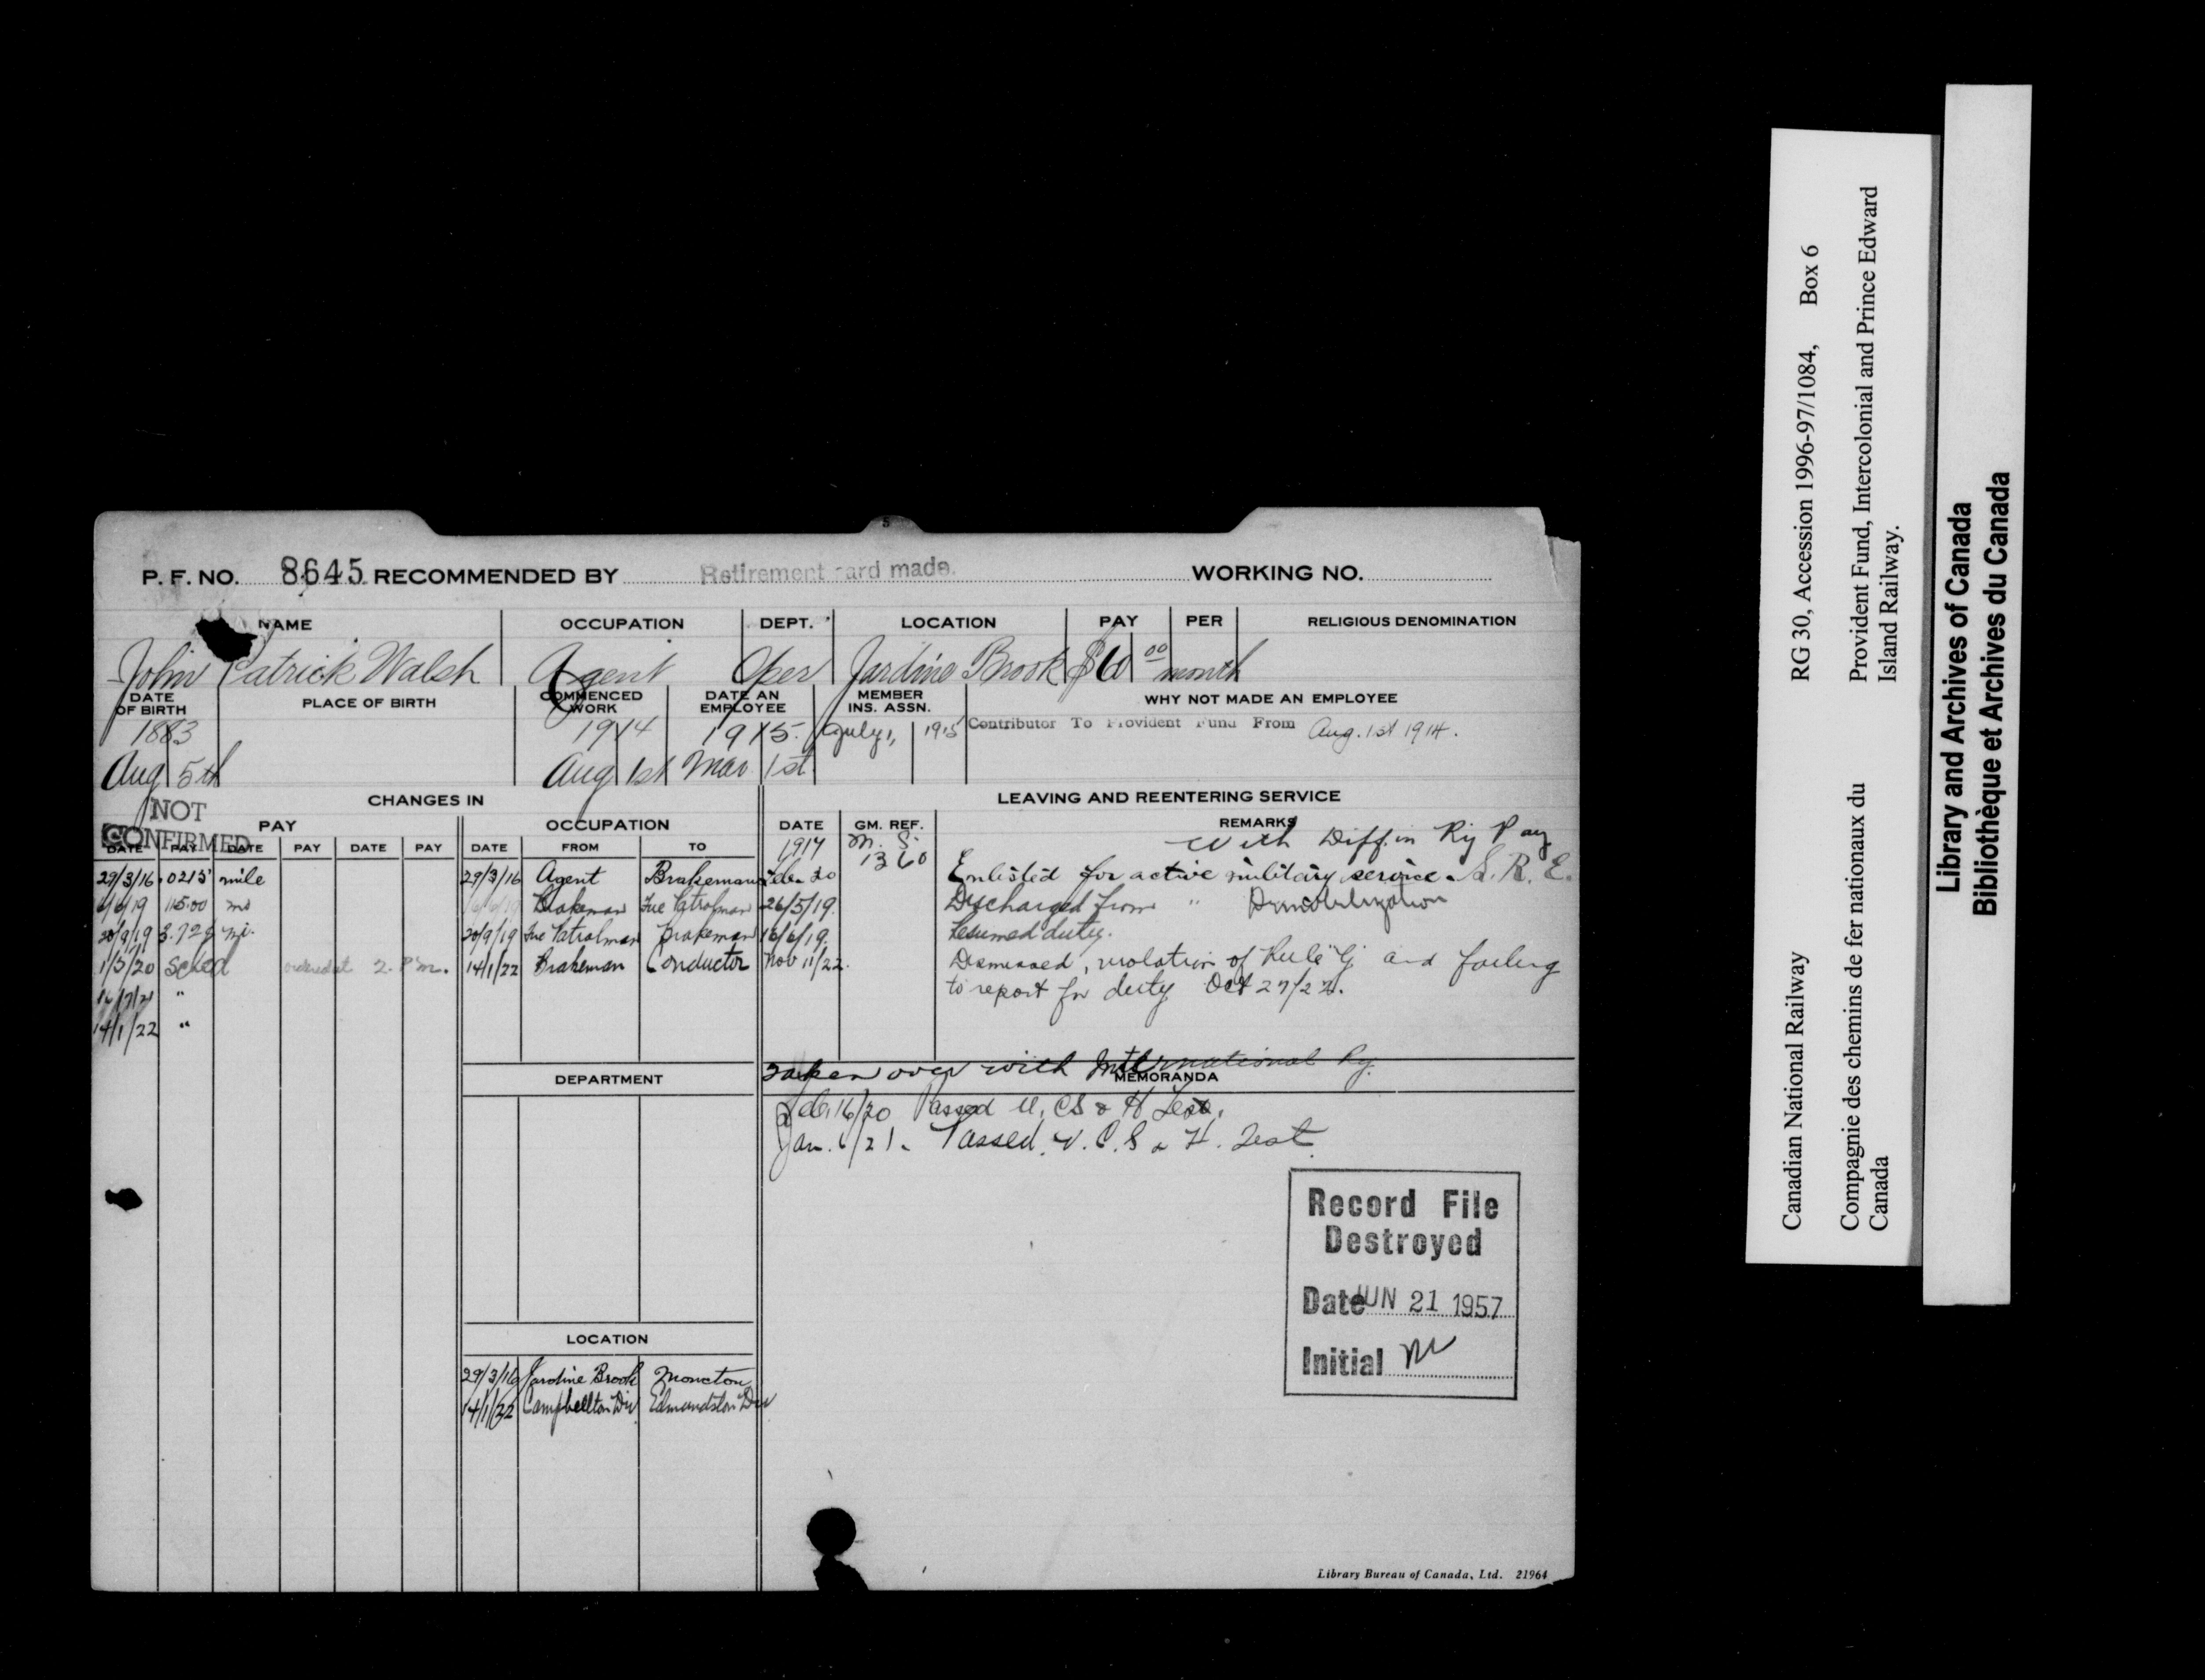 P. F. NO. 8645 RECOMMENDED BY Retirement card made. WORKING NO.
NAME OCCUPATION DEPT. LOCATION PAY PER RELIGIOUS DENOMINATION
John Patrick Walsh Agent Oper Jardine Brook $60 00 month
DATE OF BIRTH PLACE OF BIRTH COMMENCED WORK DATE AN EMPLOYEE MEMBER INS. ASSN. WHY NOT MADE AN EMPLOYEE
1883 1914 1915 July 1, 1915 Contributor To Provident Fund From Aug. 1st 1914.
Aug 5th Aug 1st Mar 1st
NOT CONFIRMED
CHANGES IN LEAVING AND REENTERING SERVICE
PAY OCCUPATION DATE GM. REF. REMARKS
DATE PAY DATE PAY DATE PAY DATE FROM TO
1917 M. S. 1360 With Diff. in Ry Pay
29/3/16 .0215 mile 29/3/16 Agent Brakeman Feb. 20 Enlisted for active military service. S. R. E.
6/6/19 115.00 mo Brakeman Fire Patrolman 26/5/19. Discharged from " Demobilization
20/9/19 3.729 mi. 20/9/19 Fire Patrolman Brakeman 16/6/19. Resumed duty.
1/5/20 Sched 2. P.m. 14/1/22 Brakeman Conductor Nov 11/22. Dismissed, violation of Rule "G" and failing
to report for duty Oct 27/22.
16/7/21 "
14/1/22 "
Taken over with International Ry.
DEPARTMENT MEMORANDA
Feb. 16/20 Passed V. CS & H Test.
Jan. 6/21. Passed V. C. S & H. Test.
Record File
Destroyed
Date JUN 21 1957
Initial
LOCATION
29/3/16 Jardine Brook Moncton
14/1/22 Campbellton Div Edmundston Div
Library Bureau of Canada, Ltd. 21964
Canadian National Railway RG 30, Accession 1996-97/1084, Box 6
Compagnie des chemins de fer nationaux du Canada
Provident Fund, Intercolonial and Prince Edward Island Railway.
Library and Archives of Canada
Bibliothèque et Archives du Canada